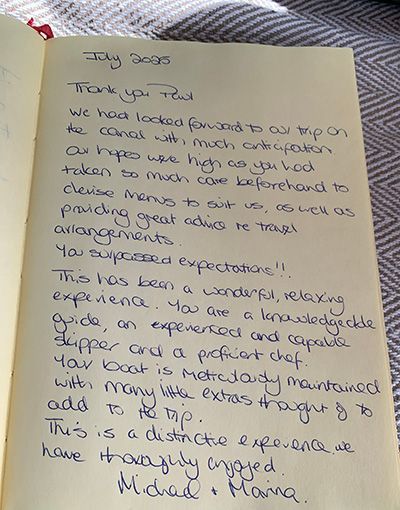 July 2025
Thank you Paul
We had looked forward to our trip on
the canal with much anticipation.
Our hopes were high as you had
taken so much care beforehand to
devise menus to suit us, as well as
providing great advice re travel
arrangements.
You surpassed expectations!!.
This has been a wonderful, relaxing
experience. You are a knowledgeable
guide, an experienced and capable
skipper and a proficient chef.
Your boat is meticulously maintained
with many little extras thought of to
add to the trip.
This is a distinctive experience we
have thoroughly enjoyed.
Michael + Marina.